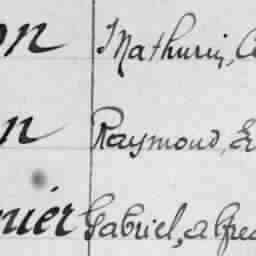 on Mathurin, A
n Raymond, E
nier Gabriel, alfred